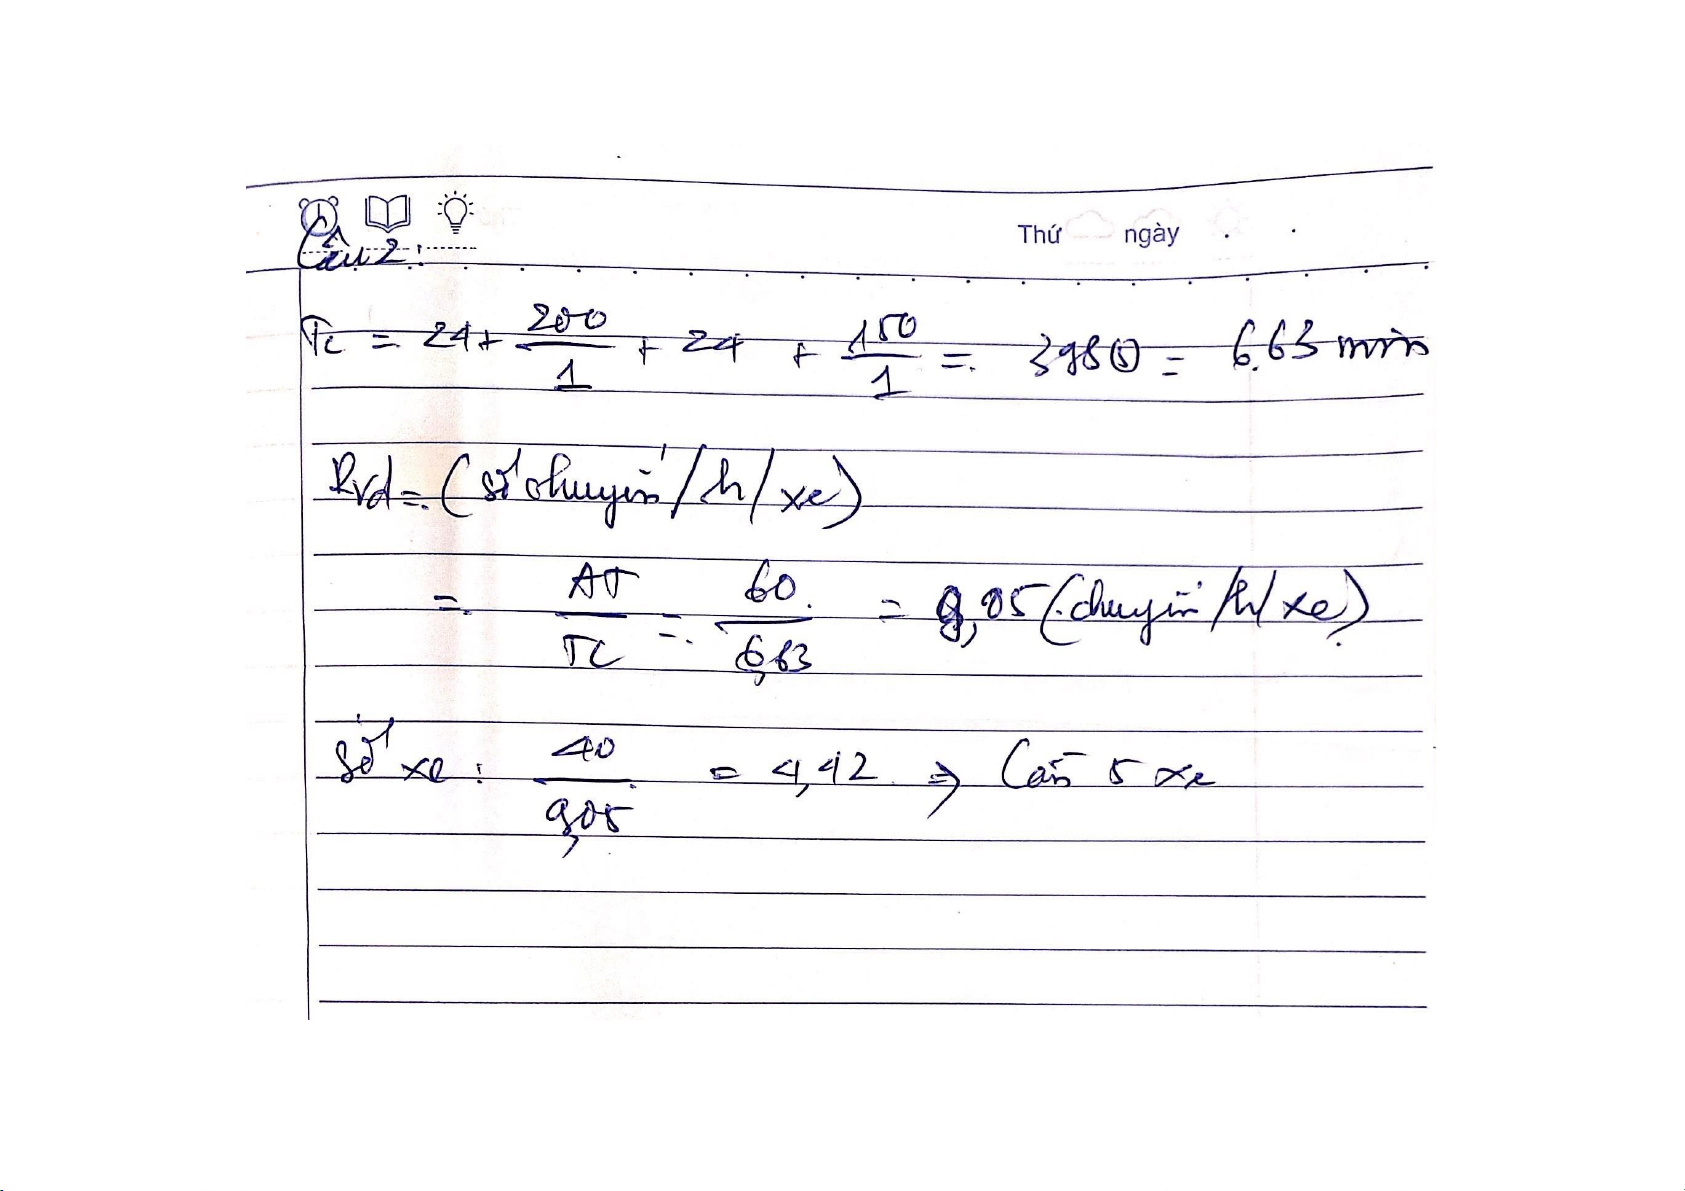 Thứ ngày
Câu 2:
Tc = 24 + 200/1 + 24 + 150/1 = 398 (s) = 6.63 min
Rvd = (số chuyến/h/xe)
= AT/TC = 60/6,63 = 9,05 (chuyến/h/xe)
Số xe: 40/9,05 = 4,42 => Cần 5 xe